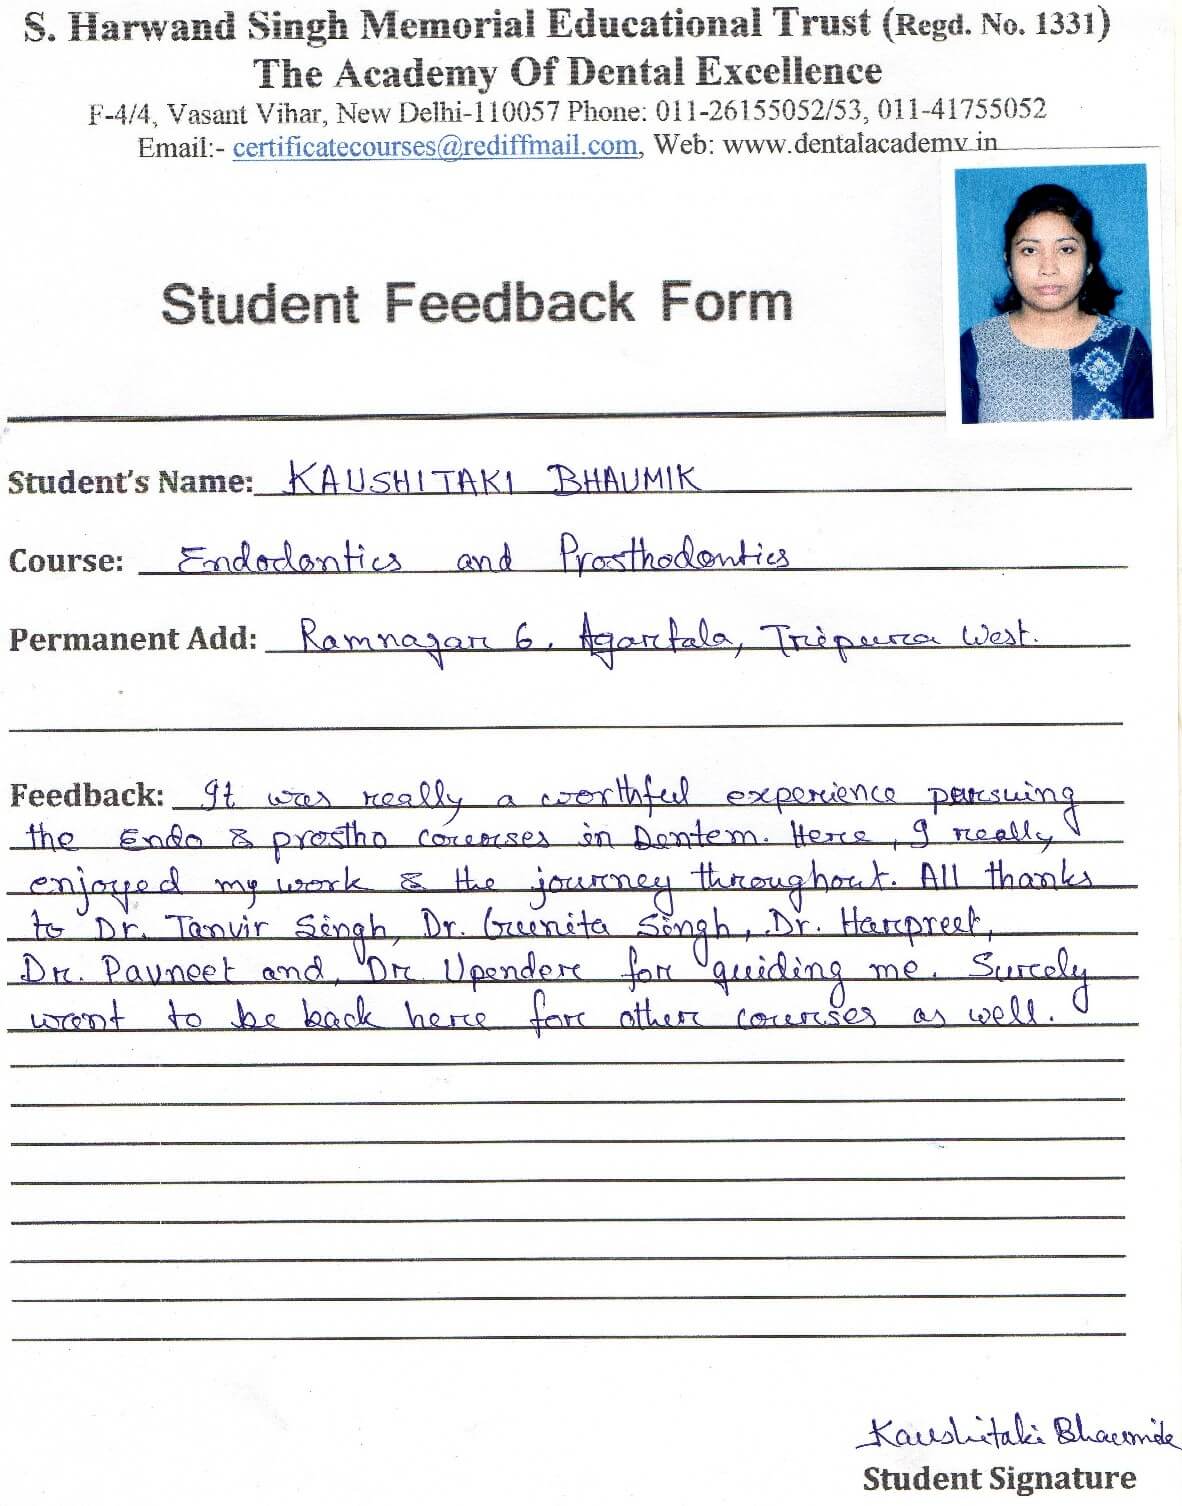 S. Harwand Singh Memorial Educational Trust (Regd. No. 1331)
The Academy Of Dental Excellence
F-4/4, Vasant Vihar, New Delhi-110057 Phone: 011-26155052/53, 011-41755052
Email:- certificatecourses@rediffmail.com, Web: www.dentalacademy.in
Student Feedback Form
Student's Name: KAUSHITAKI BHAUMIK
Course: Endodontics and Prosthodontics
Permanent Add: Ramnagar 6, Agartala, Tripura West.
Feedback: It was really a worthful experience pursuing
the Endo & prostho courses in Dentem. Here, I really
enjoyed my work & the journey throughout. All thanks
to Dr. Tanvir Singh, Dr. Gunita Singh, Dr. Harpreet,
Dr. Pavneet and Dr Upender for guiding me. Surely
want to be back here for other courses as well.
Kaushitaki Bhaumik
Student Signature